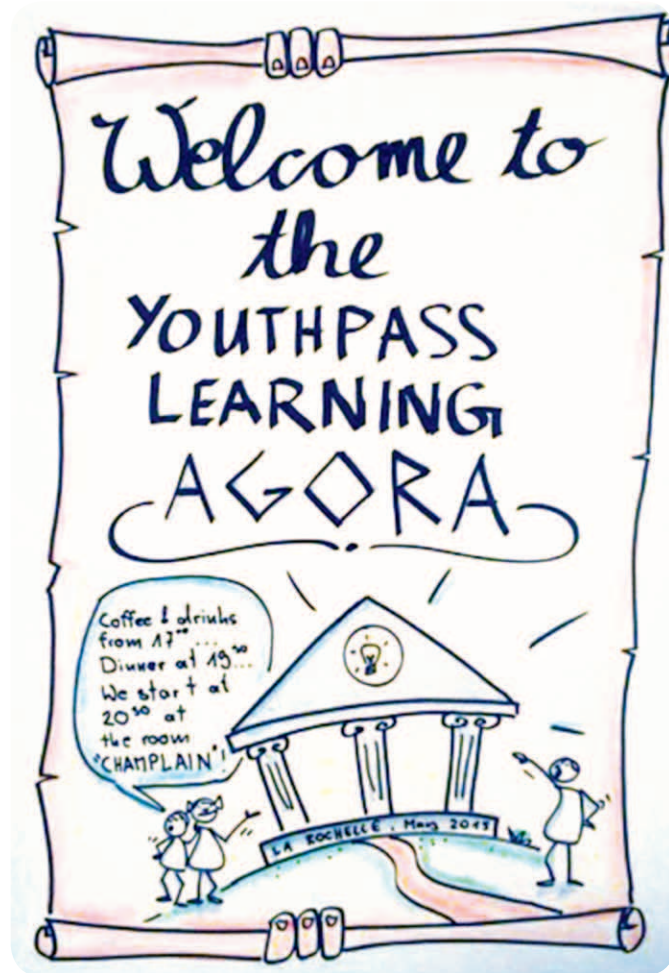 Welcome to
the
YOUTHPASS
LEARNING
AGORA
Coffee & drinks
from 17⁰⁰...
Dinner at 19³⁰...
We start at
20³⁰ at
the room
"CHAMPLAIN"!
LA ROCHELLE,